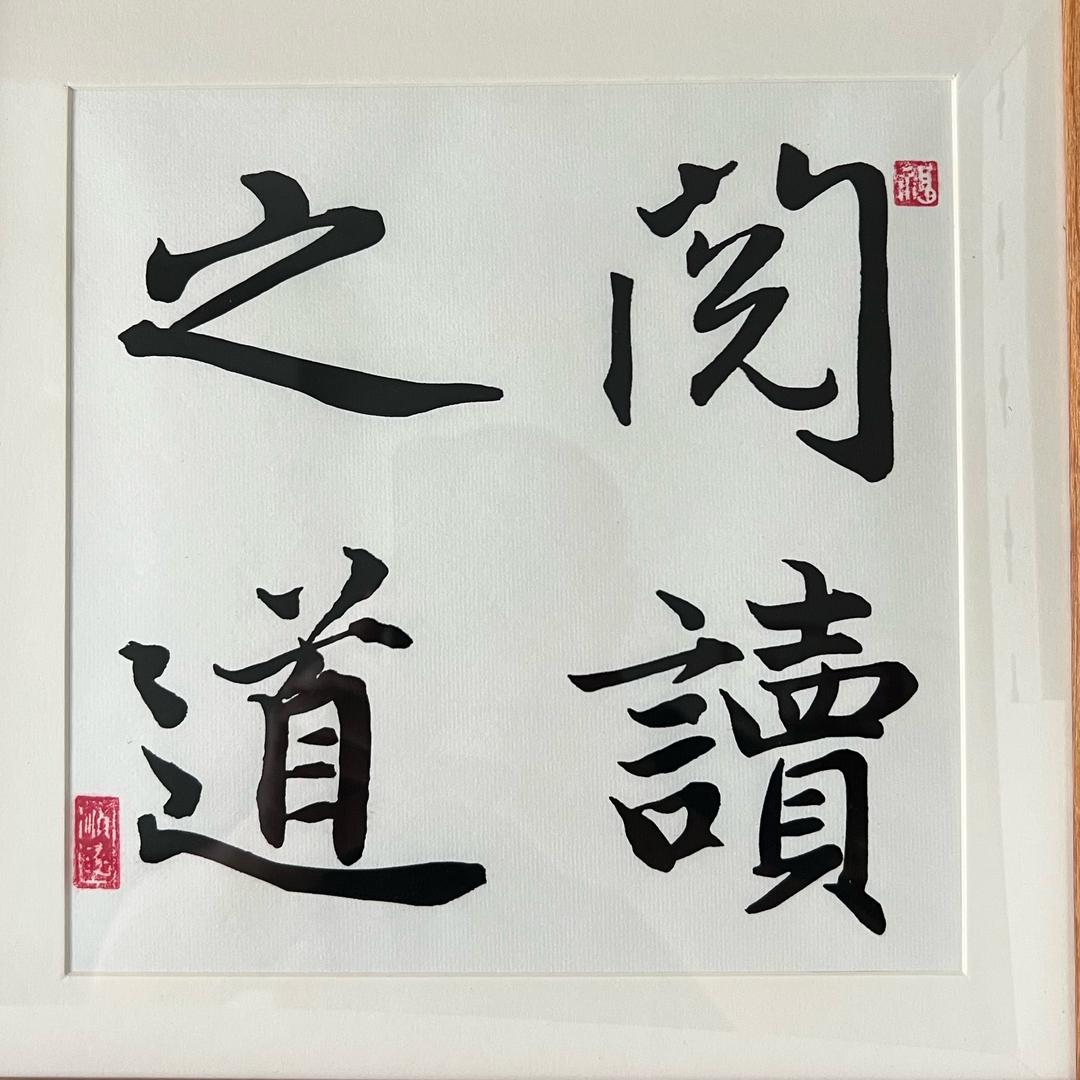 閱讀
之道